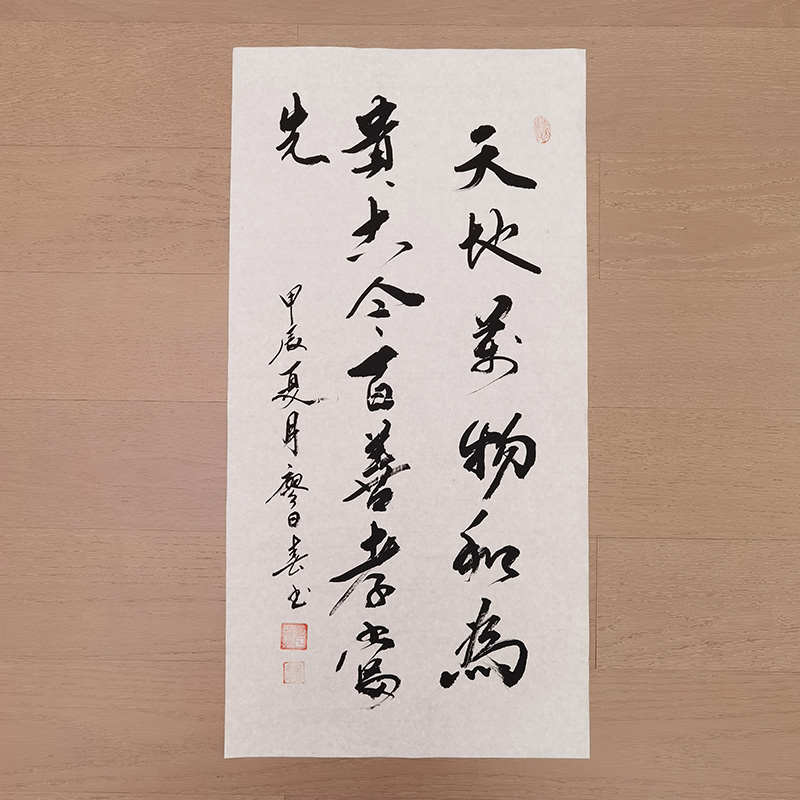 天地萬物和為
貴古今百善孝當
先
甲辰夏月廖日春书